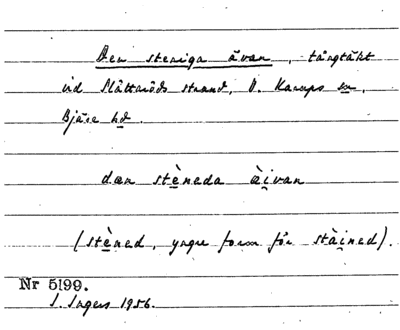 Den steniga åvan, tångtäkt
vid Slättaröds strand, V. Karups sn,
Bjäre hd.
dæn stèneda àivan
(stèned, yngre form för stàined).
Nr 5199.
I. Ingers 1956.